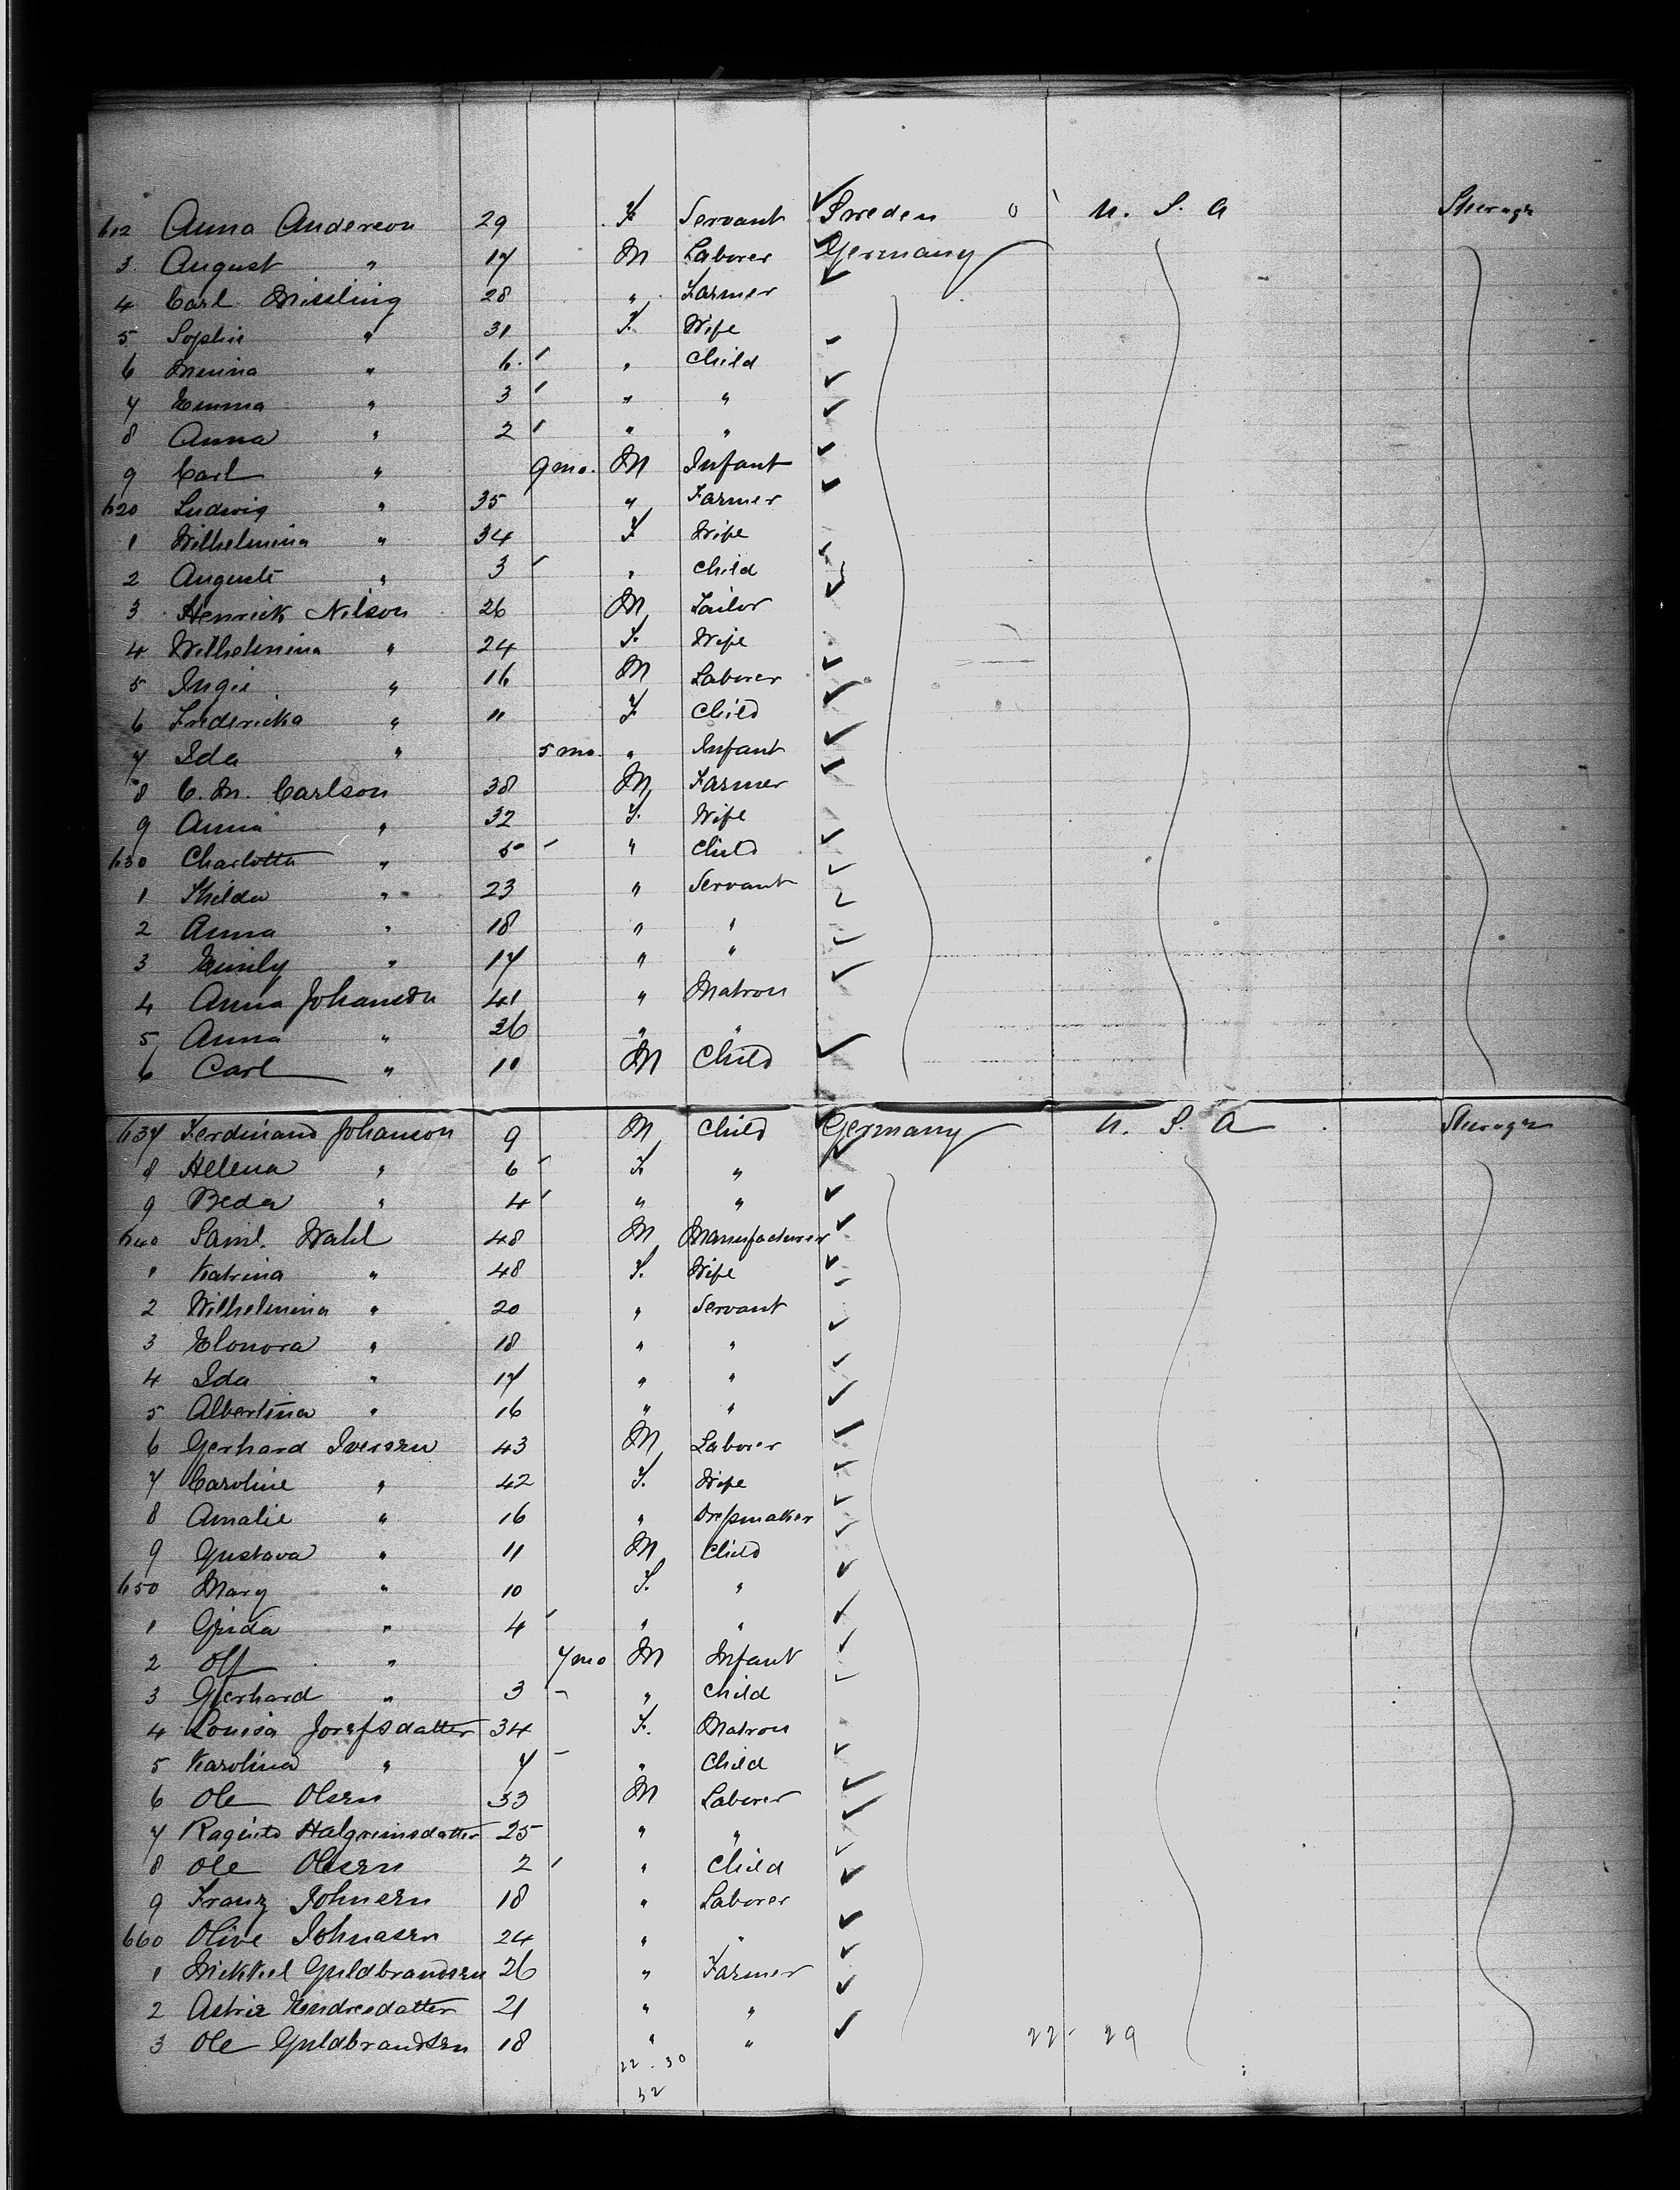 612 Anna Anderson 29 F Servant Sweden U. S. A Steerage
3 August " 17 M Laborer Germany
4 Carl Missling 28 " Farmer
5 Sophie " 31 F. Wife
6 Minna " 6 " Child
7 Emma " 3 " "
8 Anna " 2 " "
9 Carl " 9 mo. M Infant
620 Ludwig " 35 " Farmer
1 Wilhelmina " 34 F Wife
2 Auguste " 3 " Child
3 Henrick Nilson 26 M Tailor
4 Wilhelmina " 24 F. Wife
5 Ingie " 16 M Laborer
6 Fredericka " 11 F Child
7 Ida " 5 mo. " Infant
8 C. M. Carlson 38 M Farmer
9 Anna " 32 F. Wife
630 Charlotta " 5 " Child
1 Hilda " 23 " Servant
2 Anna " 18 " "
3 Emily " 17 " "
4 Anna Johanson 41 " Matron
5 Anna " 26 " "
6 Carl " 10 M Child
637 Ferdinand Johanson 9 M Child Germany U. S. A Steerage
8 Helena " 6 F. "
9 Beda " 4 " "
640 Saml. Wahl 48 M Manufacturer
1 Katrina " 48 F. Wife
2 Wilhelmina " 20 " Servant
3 Elonora " 18 " "
4 Ida " 17 " "
5 Albertina " 16 " "
6 Gerhard Iversen 43 M Laborer
7 Caroline " 42 F. Wife
8 Amalie " 16 " Dressmaker
9 Gustava " 11 M Child
650 Mary " 10 F. "
1 Gurda " 4 " "
2 Olf " 7 mo M Infant
3 Gerhard " 3 " Child
4 Louisa Josefsdatter 34 F. Matron
5 Karolina " 7 " Child
6 Ole Olsen 33 M Laborer
7 Halgrimsdatter 25 " "
8 Ole Olsen 2 " Child
9 Franz Johnsen 18 " Laborer
660 Olive Johnasen 24 " "
1 Mikkel Guldbrandsen 26 " Farmer
2 Endresdatter 21 " "
3 Ole Guldbrandsen 18 " " 22 - 29
22 . 30
52